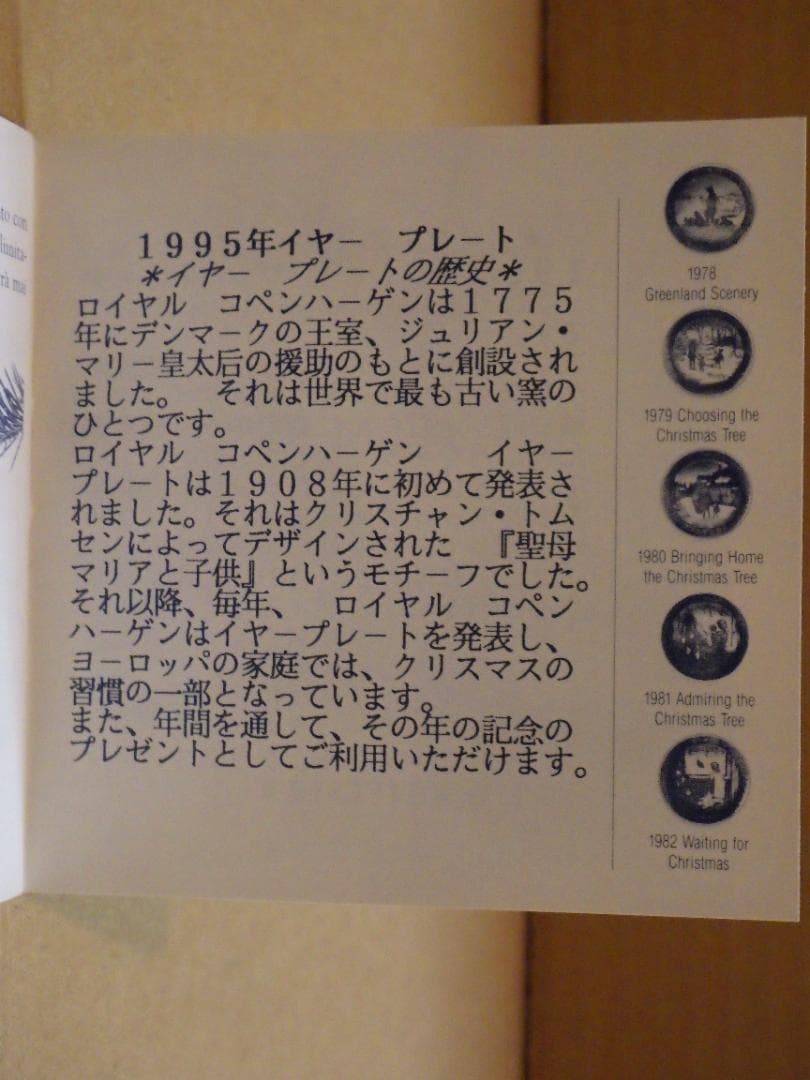 to con
lunita-
rà mai
１９９５年イヤー　プレート
＊イヤー　プレートの歴史＊
ロイヤル　コペンハーゲンは１７７５
年にデンマークの王室、ジュリアン・
マリー皇太后の援助のもとに創設され
ました。　それは世界で最も古い窯の
ひとつです。
ロイヤル　コペンハーゲン　　イヤー
プレートは１９０８年に初めて発表さ
れました。それはクリスチャン・トム
センによってデザインされた　『聖母
マリアと子供』というモチーフでした。
それ以降、毎年、　ロイヤル　コペン
ハーゲンはイヤープレートを発表し、
ヨーロッパの家庭では、クリスマスの
習慣の一部となっています。
また、年間を通して、その年の記念の
プレゼントとしてご利用いただけます。
1978
Greenland Scenery
1979 Choosing the
Christmas Tree
1980 Bringing Home
the Christmas Tree
1981 Admiring the
Christmas Tree
1982 Waiting for
Christmas